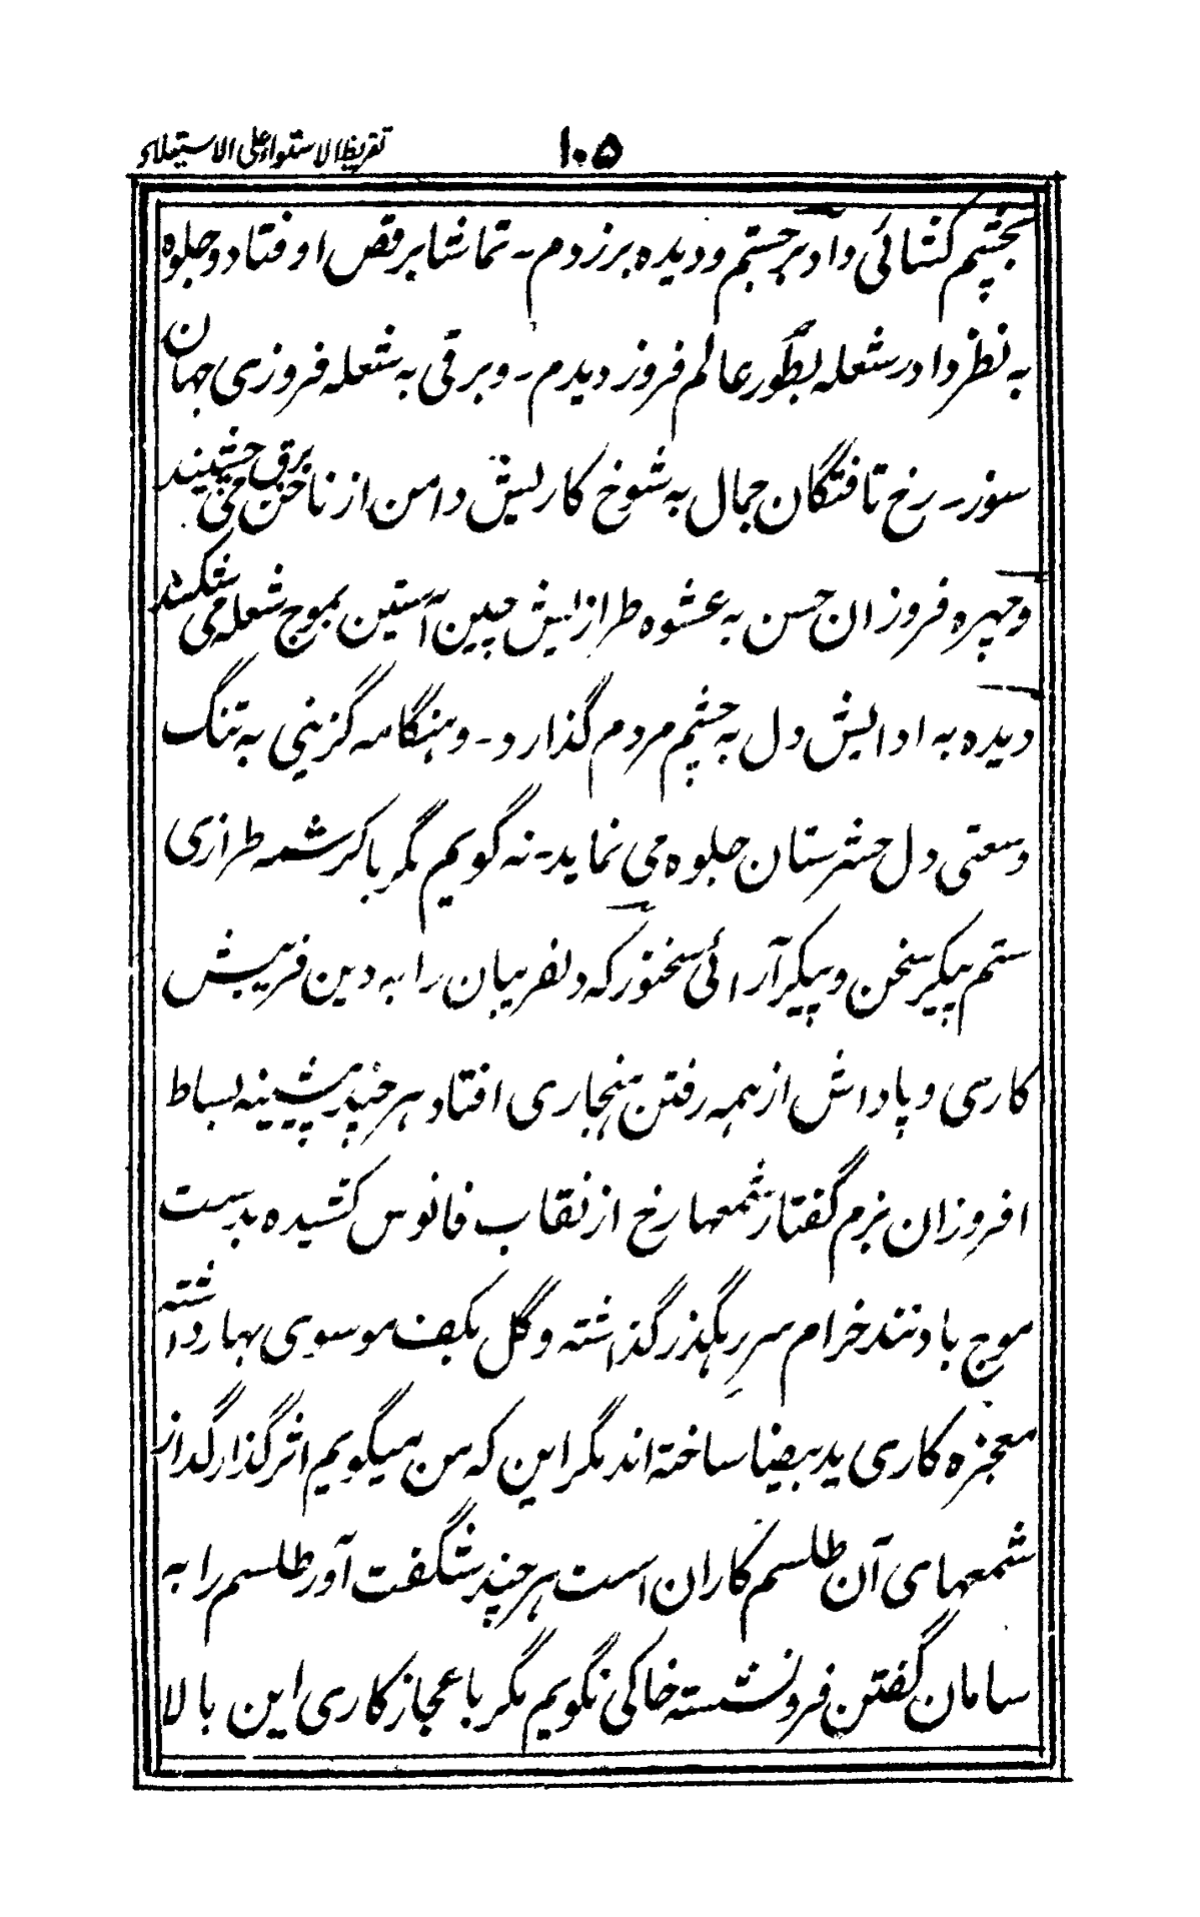 ۱۰۵ تقریظ الاستواء علی الاستیعلاء
بچشم کشائی داد برجستم و دیده برزدم۔ تماشا برقص اوفتاد و جلوه
به نظر داد در شعله بطور عالم فروز دیدم۔ و برقی به شعله فروزی جهان
سوز۔ رخ تافتگان جمال به شوخ کاریش دامن از ناخن برق می چینند
و چهره فروزان حسن به عشوه طرازیش چین آستین بموج شعله می شکنند
دیده به ادایش دل به چشم مردم گذارد۔ و هنگامه گزینی به تنگ
وسعتی دل حشرستان جلوه می نماید۔ نه گویم مگر با کرشمه طرازی
ستم پیکر سخن و پیکر آرائی سخنور که دلفریبان را به دین فریبش
کاری و پاداش از همه رفتن هنجاری افتاد هر چند پیشینه بساط
افروزان بزم گفتار شمعها رخ از نقاب فانوس کشیده بدست
موج باد تند خرام سر رهگذر گذاشته و گل بکف موسوی بهار داشته
معجزه کاری ید بیضا ساخته اند مگر این که من میگویم اثر گذار گداز
شمعهای آن طلسم کاران است هر چند شگفت آور طلسم را به
سامان گفتن فرو نشسته خاکی نگویم مگر با عجاز کاری این بالا